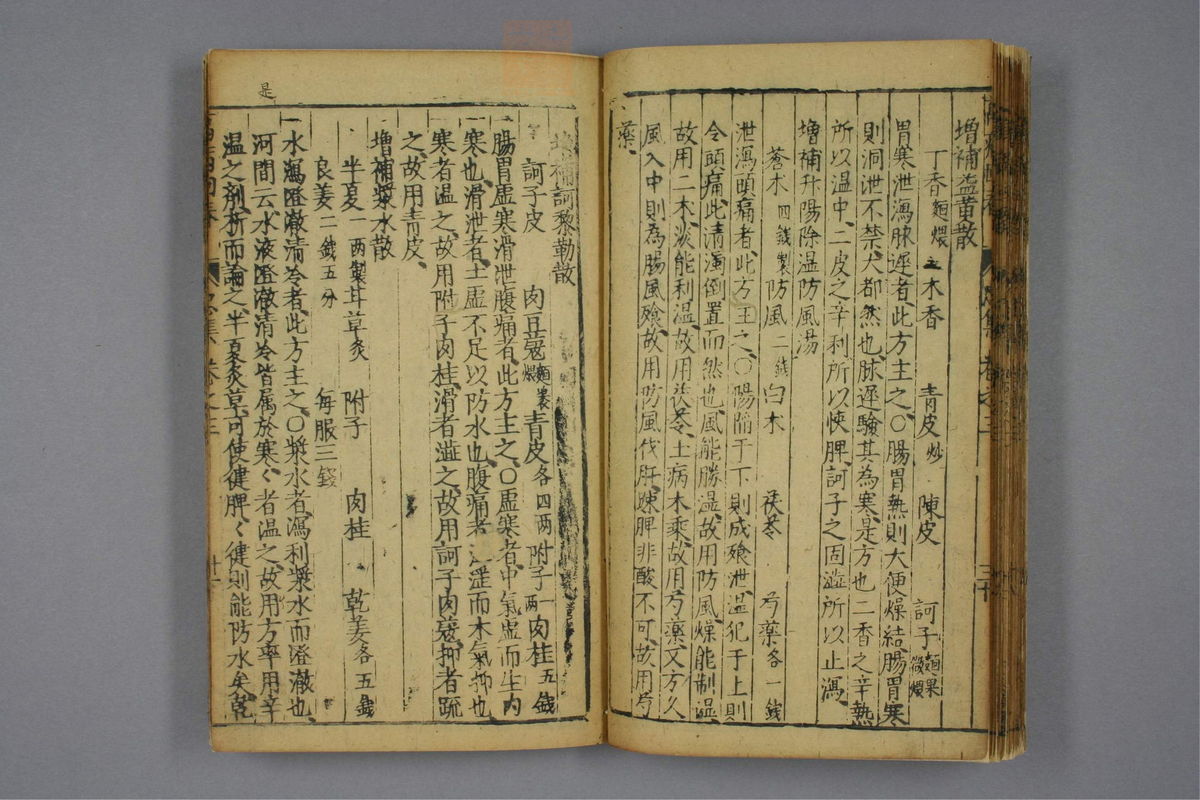 增補益黄散
丁香麺煨 木香 青皮炒 陳皮 訶子麺果微煨
胃寒泄瀉脉遲者、此方主之、○腸胃熱則大便燥結、腸胃寒
則洞泄不禁、大都然也、脉遲驗其為寒、是方也二香之辛熱
所以温中、二皮之辛利所以快脾、訶子之固澁所以止瀉、
增補升陽除温防風湯
蒼木四錢製防風二錢 白木 茯苓 芍藥各一錢
泄瀉頭痛者、此方主之、○陽陷于下則成飧泄、温犯于上則
令頭痛、此清濁倒置而然也、風能勝温、故用防風、燥能制温、
故用二木、淡能利温、故用茯苓、土病木乘、故用芍藥、又方久
風入中則為腸風飧、故用防風伐肝、踈脾非酸不可、故用芍
藥、
增補訶黎勒散
訶子皮 肉豆蔻麺裹煨青皮各四两附子一两肉桂五錢
腸胃虛寒滑泄腹痛者、此方主之、○虛寒者、中氣虛而生内
寒也、滑泄者、土虛不足以防水也、腹痛者 澁而木氣抑也
寒者温之、故用附子肉桂、滑者澁之、故用訶子肉蔻、抑者疏
之、故用青皮、
增補漿水散
半夏一两製甘草炙 附子 肉桂 乾姜各五錢
良姜二錢五分 每服三錢
水瀉澄澈清冷者、此方主之、○漿水者、瀉利漿水而澄澈也、
河間云水液澄澈清冷皆属於寒、〻者温之、故用方率用辛
温之剂、析而論之、半夏炙草、可使健脾、〻健則能防水矣、乾
是